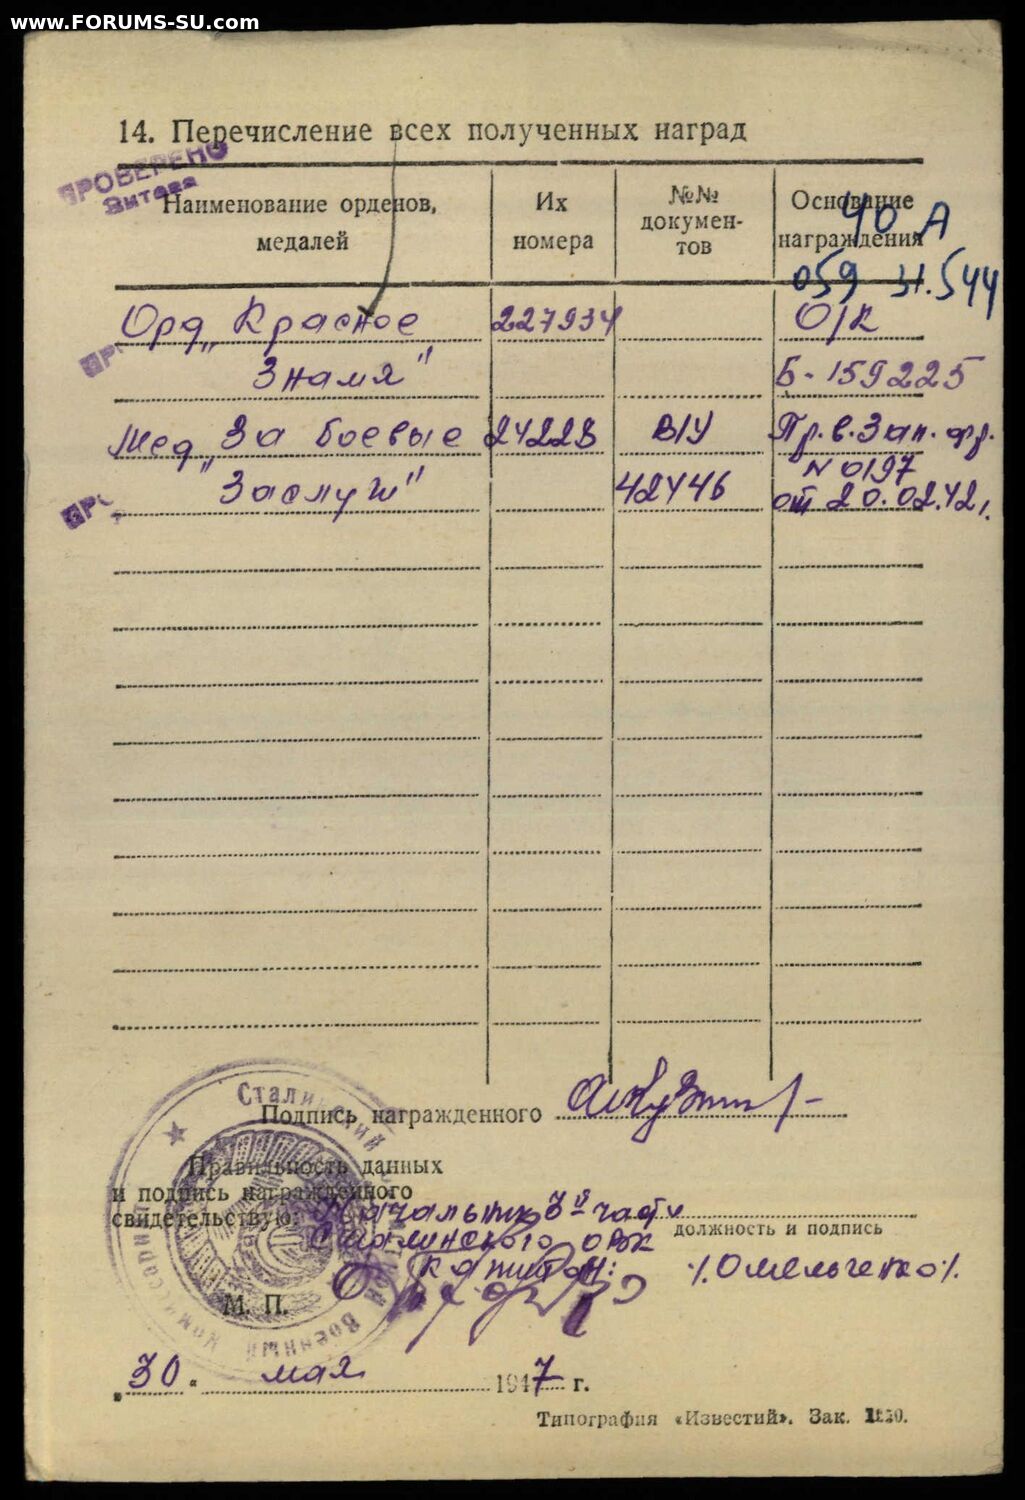 www.FORUMS-SU.com
14. Перечисление всех полученных наград
ПРОВЕРЕНО
Наименование орденов, медалей
Их номера
№№ документов
Основание награждения
40 А
059 Н.544
Орд „Красное 227934 О/К
Знамя" Б-159225
Мед „За боевые 24228 В/У Пр.в.Зап.фр.
N 0197
Заслуги" 42446 от 20.02.42г.
Подпись награжденного
Правильность данных
и подпись награжденного
свидетельствую: Начальник 3й части
должность и подпись
Сталинского ОВК
Капитан: /.Омельченко/.
М. П.
Сталинский
Военный Комиссариат
„30" мая 1947 г.
Типография «Известий». Зак.